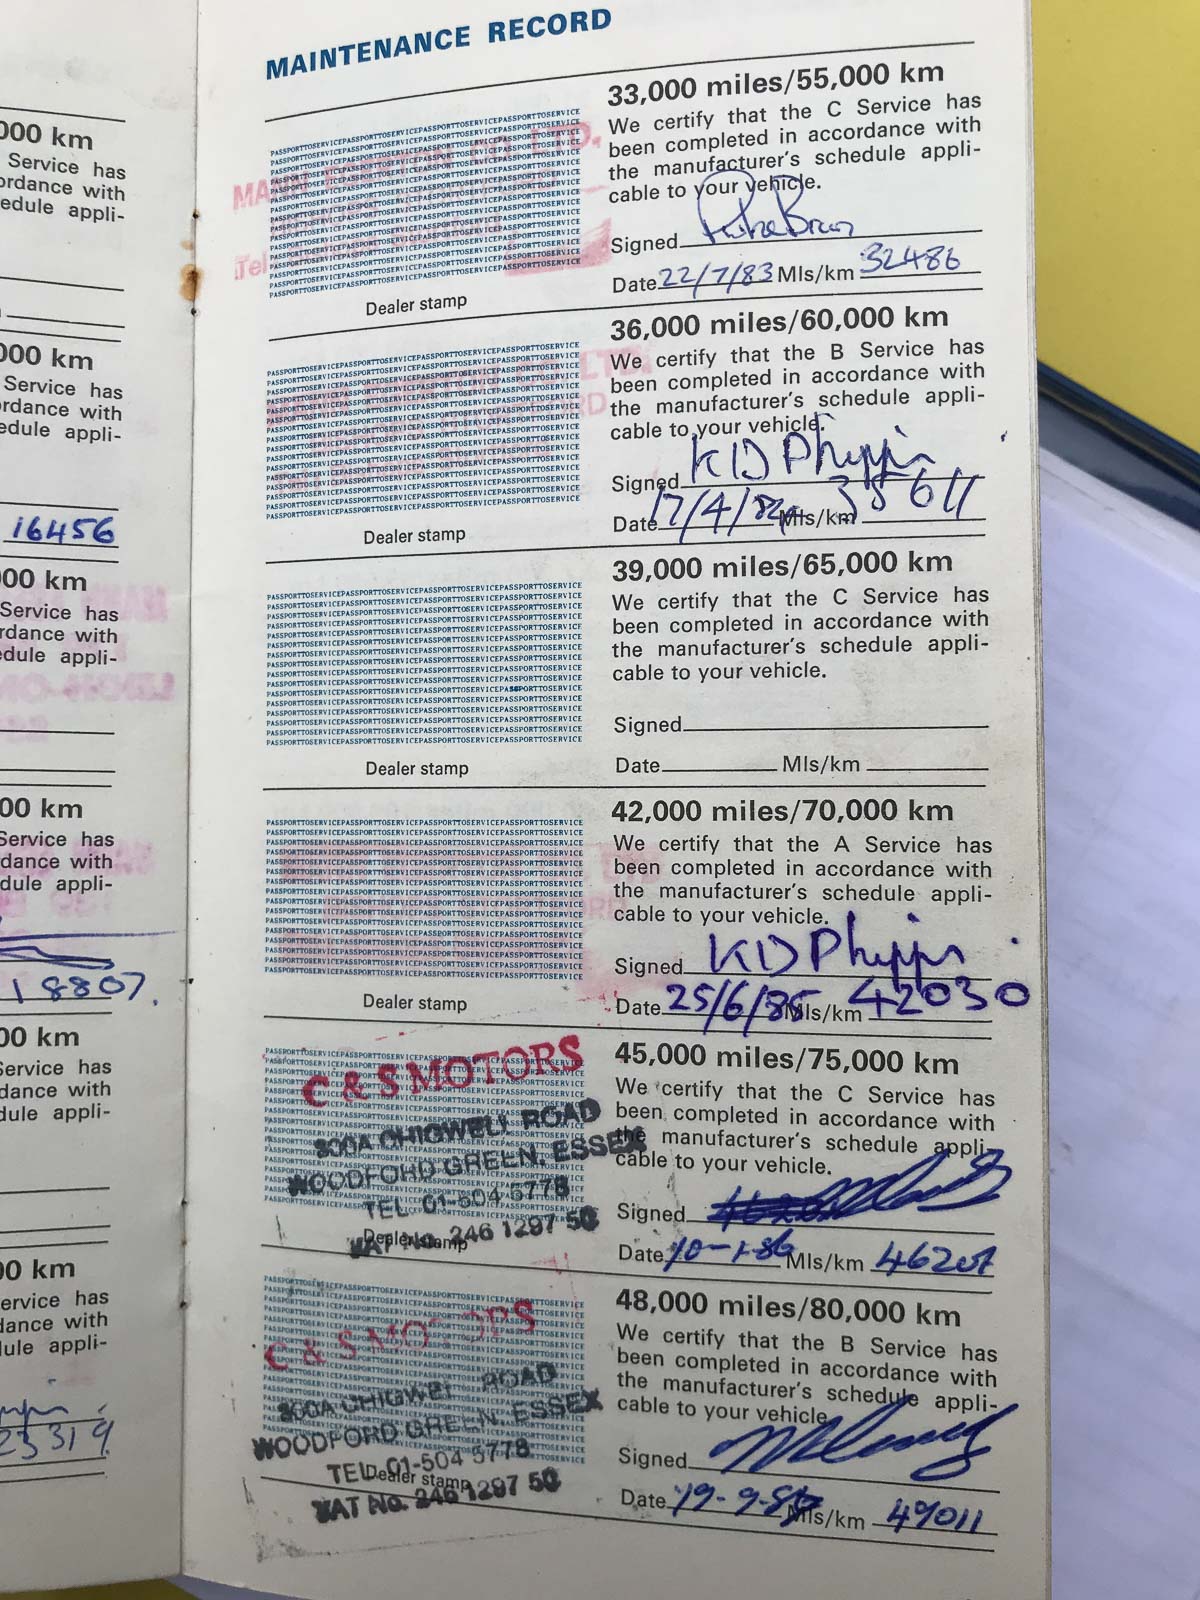 000 km
Service has
ordance with
hedule appli-
000 km
Service has
ordance with
edule appli-
16456
000 km
Service has
rdance with
edule appli-
00 km
Service has
dance with
dule appli-
18807.
00 km
Service has
dance with
dule appli-
00 km
ervice has
dance with
lule appli-
25319
MAINTENANCE RECORD
33,000 miles/55,000 km
We certify that the C Service has
been completed in accordance with
the manufacturer's schedule appli-
cable to your vehicle.
Signed
Date 22/7/83 Mls/km 32486
LTD.
Tel
Dealer stamp
36,000 miles/60,000 km
We certify that the B Service has
been completed in accordance with
the manufacturer's schedule appli-
cable to your vehicle.
Signed KD
Date 17/4/84 Mls/km 35611
LTD.
Dealer stamp
39,000 miles/65,000 km
We certify that the C Service has
been completed in accordance with
the manufacturer's schedule appli-
cable to your vehicle.
Signed
Date Mls/km
Dealer stamp
42,000 miles/70,000 km
We certify that the A Service has
been completed in accordance with
the manufacturer's schedule appli-
cable to your vehicle.
Signed KD
Date 25/6/85 Mls/km 42030
Dealer stamp
45,000 miles/75,000 km
We certify that the C Service has
been completed in accordance with
the manufacturer's schedule appli-
cable to your vehicle.
Signed
Date 10-1-86 Mls/km 46201
C & S MOTORS
300A CHIGWELL ROAD
WOODFORD GREEN, ESSEX
TEL 01-504 5778
VAT No. 246 1297 50
Dealer stamp
48,000 miles/80,000 km
We certify that the B Service has
been completed in accordance with
the manufacturer's schedule appli-
cable to your vehicle
Signed
Date 19-9-86 Mls/km 49011
C & S MOTORS
300A CHIGWELL ROAD
WOODFORD GREEN, ESSEX
TEL 01-504 5778
Dealer stamp
VAT No. 246 1297 50